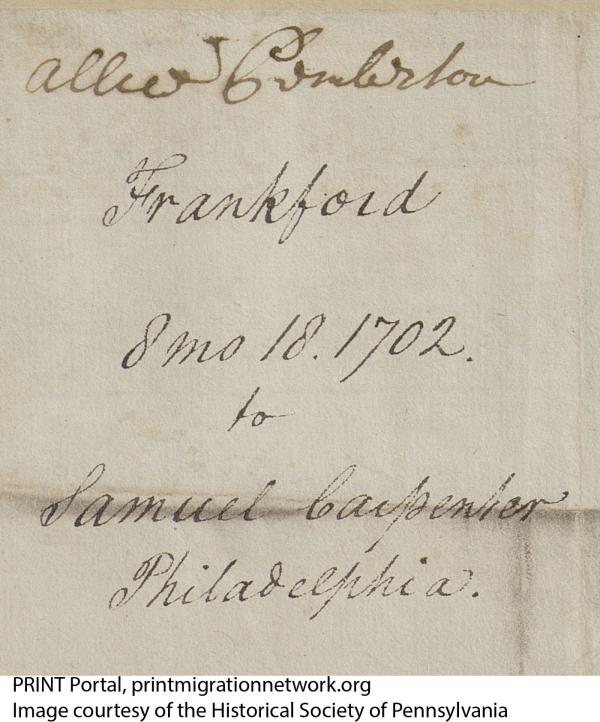 Pemberton
Frankford
8 mo 18. 1702.
to
Samuel Carpenter
Philadelphia.
PRINT Portal, printmigrationnetwork.org
Image courtesy of the Historical Society of Pennsylvania